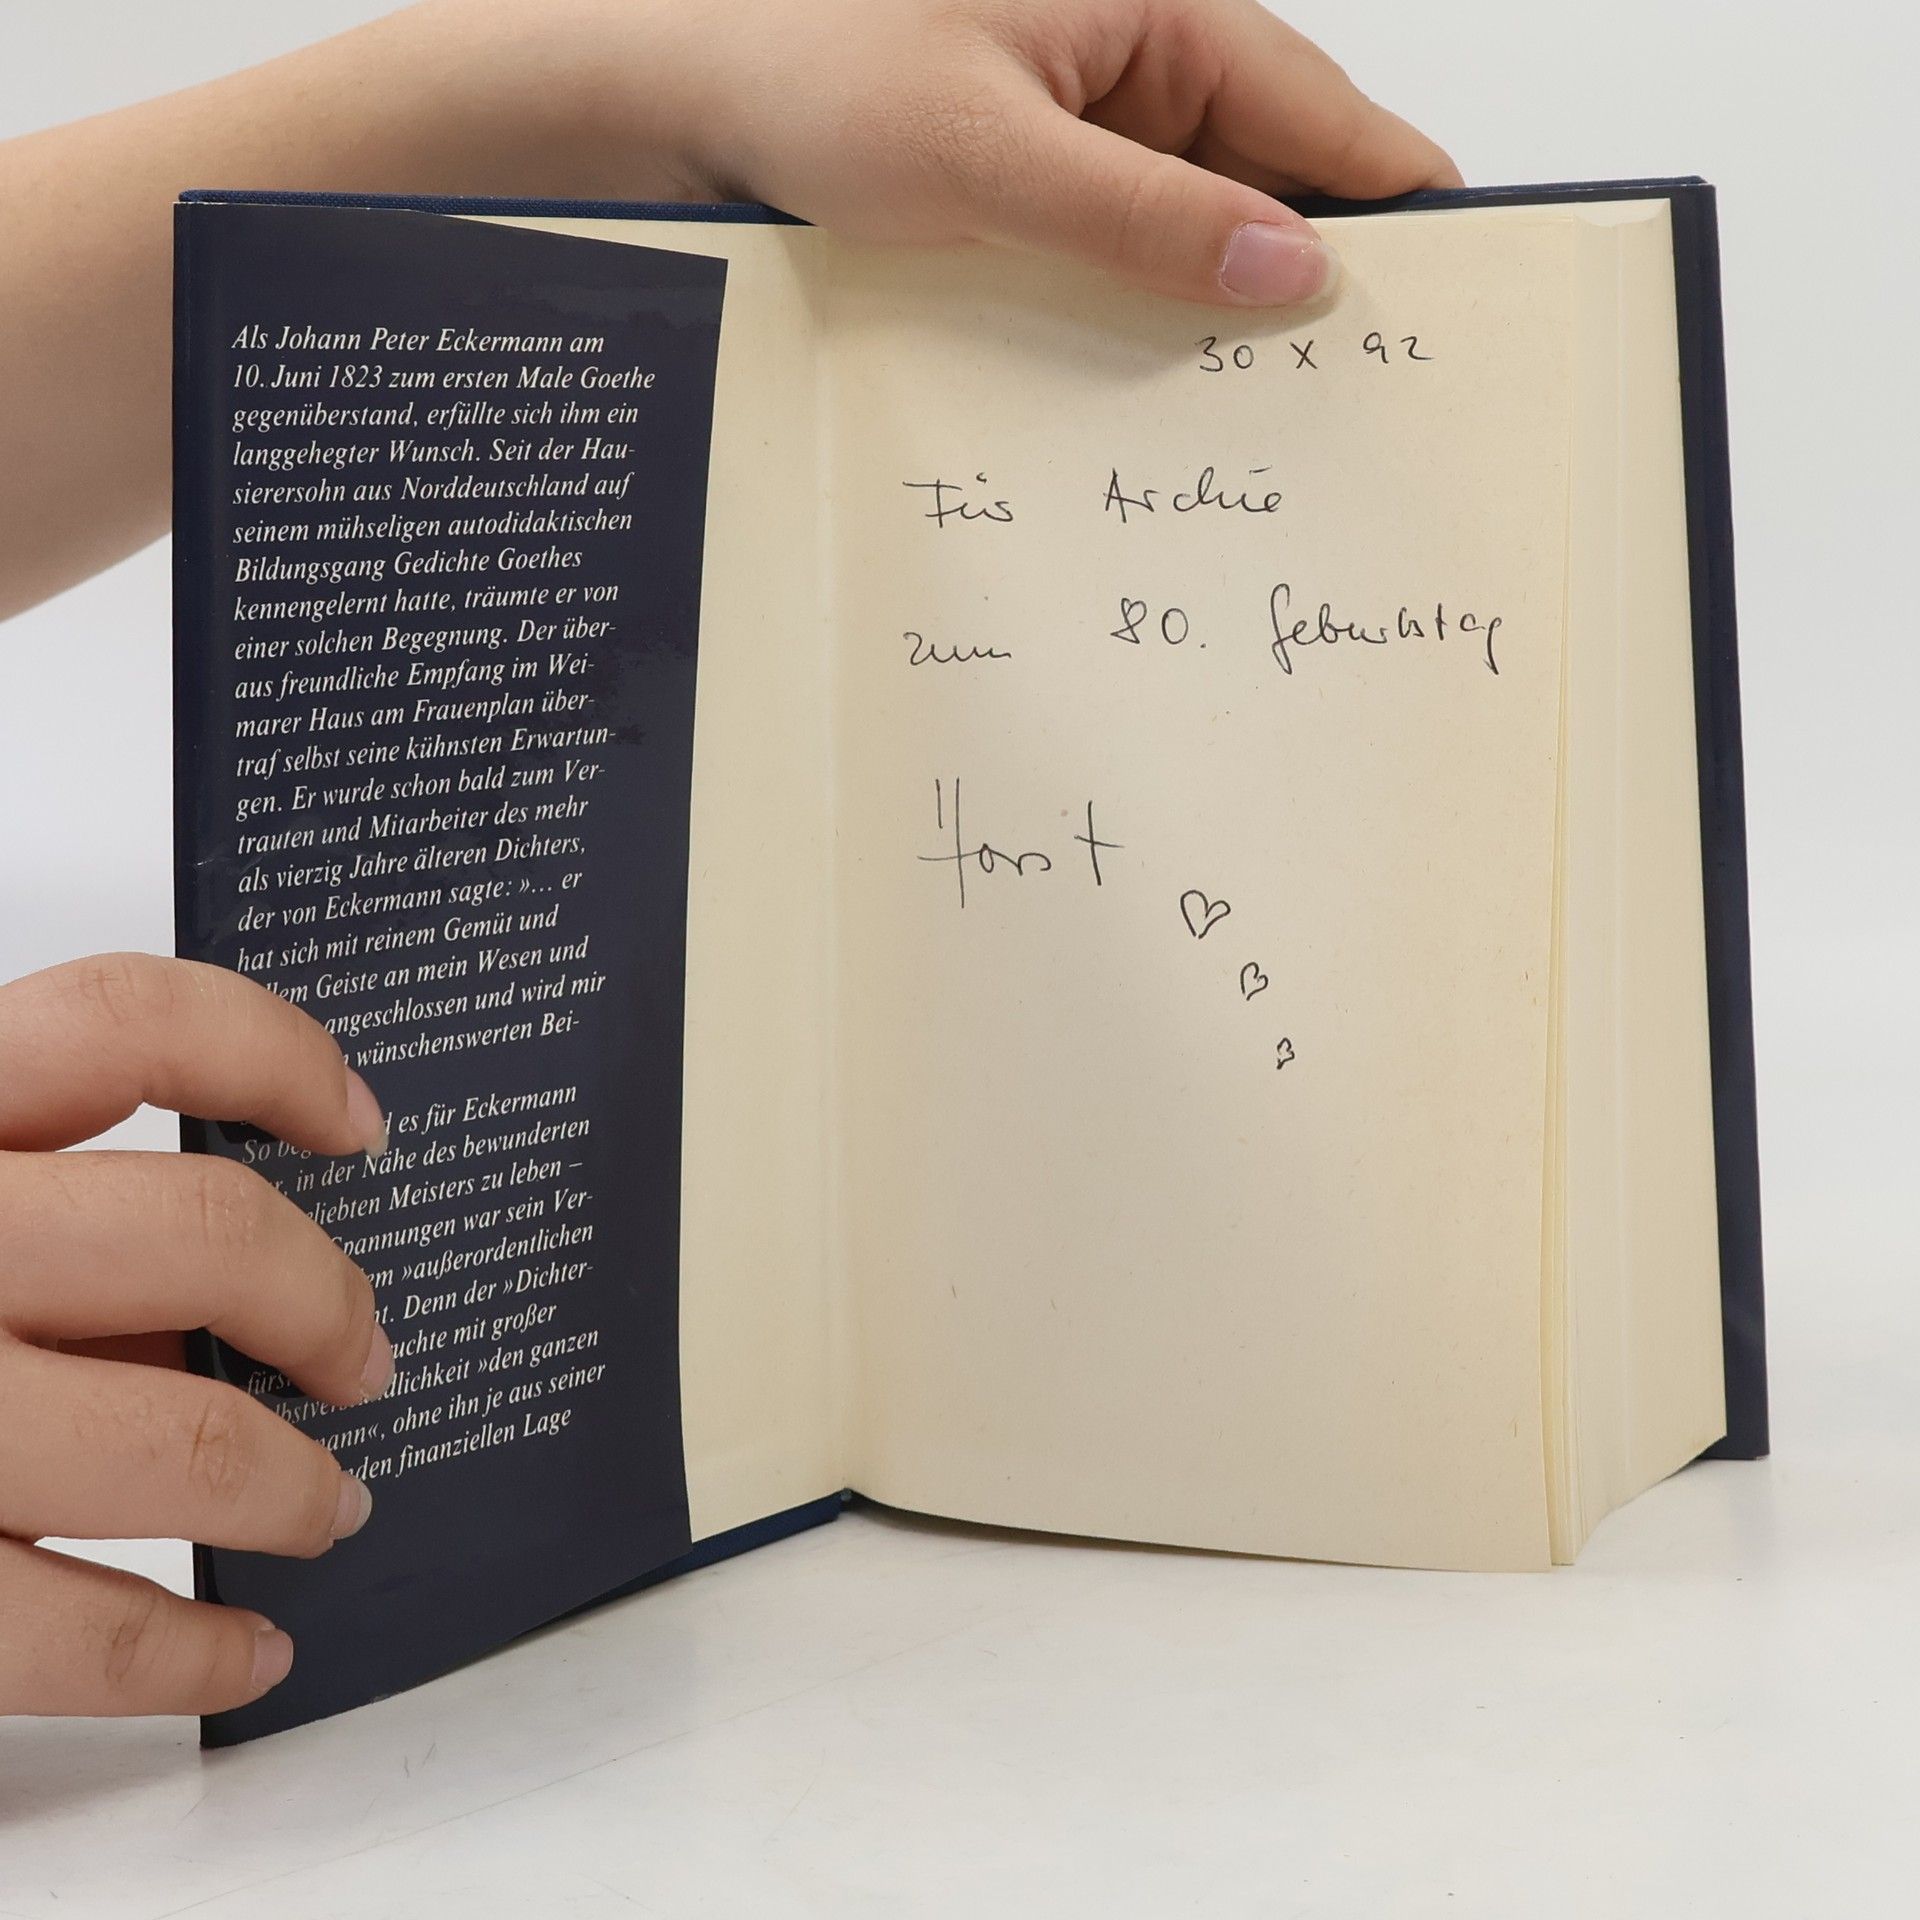 Als Johann Peter Eckermann am
10. Juni 1823 zum ersten Male Goethe
gegenüberstand, erfüllte sich ihm ein
langgehegter Wunsch. Seit der Hau-
sierersohn aus Norddeutschland auf
seinem mühseligen autodidaktischen
Bildungsgang Gedichte Goethes
kennengelernt hatte, träumte er von
einer solchen Begegnung. Der über-
aus freundliche Empfang im Wei-
marer Haus am Frauenplan über-
traf selbst seine kühnsten Erwartun-
gen. Er wurde schon bald zum Ver-
trauten und Mitarbeiter des mehr
als vierzig Jahre älteren Dichters,
der von Eckermann sagte: »... er
hat sich mit reinem Gemüt und
Geiste an mein Wesen und
angeschlossen und wird mir
wünschenswerten Bei-
es für Eckermann
So
in der Nähe des bewunderten
Meisters zu leben –
war sein Ver-
»außerordentlichen
Denn der »Dichter-
mit großer
»den ganzen
ohne ihn je aus seiner
finanziellen Lage
30 X 92
Für Archie
zum 80. Geburtstag
Horst